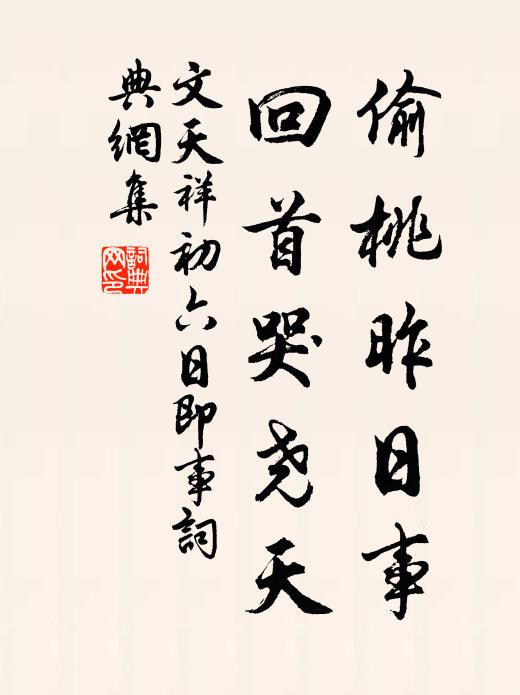 偷桃昨日事
回首哭尧天
文天祥初六日即事詞
典網集
詞典網印